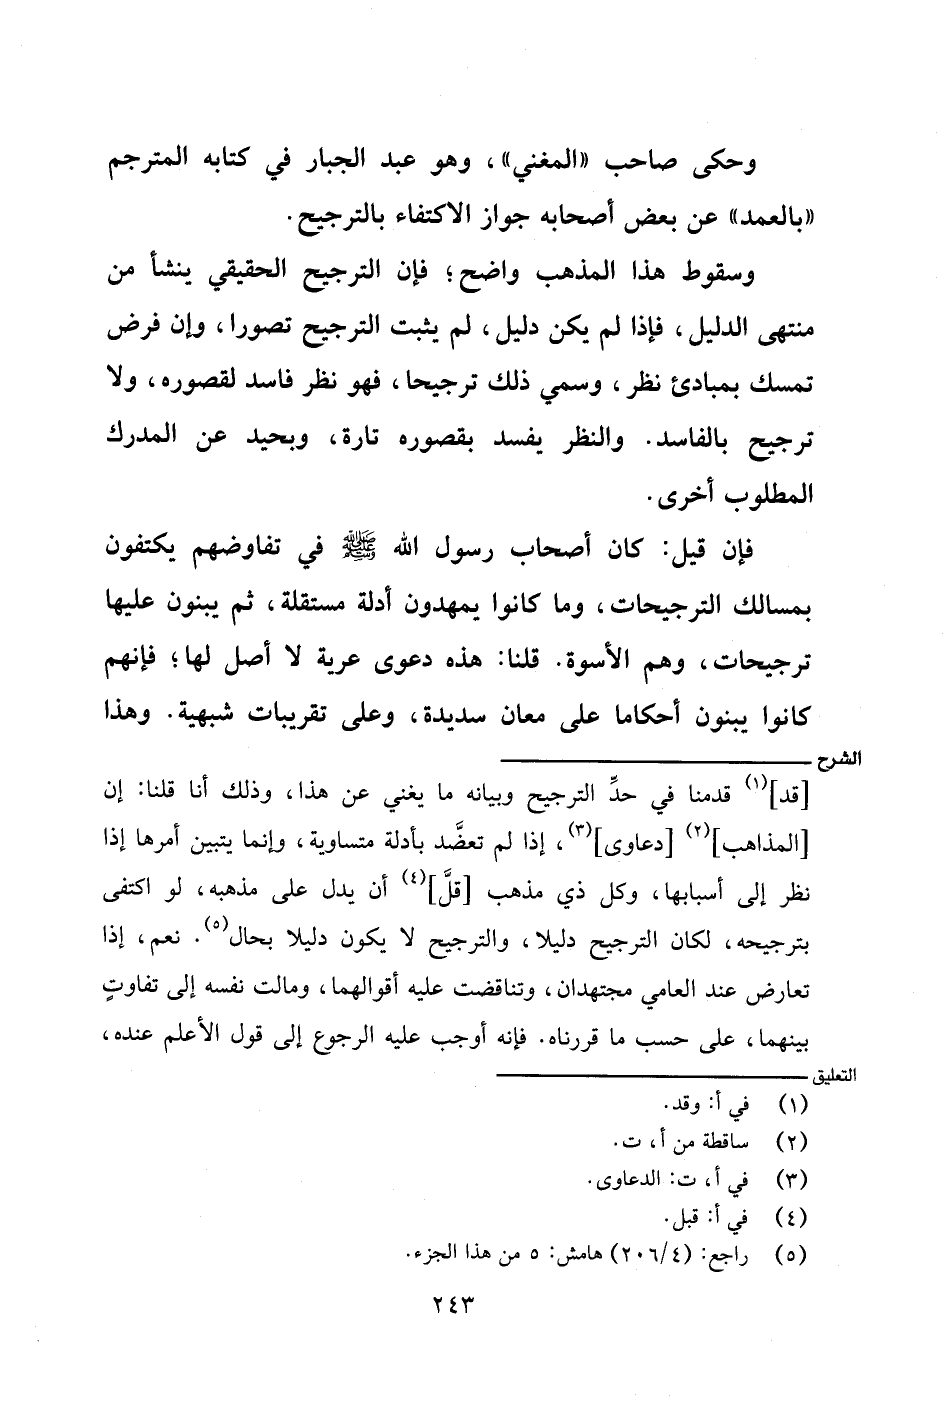 وحكى صاحب «المغني»، وهو عبد الجبار في كتابه المترجم
«بالعمد» عن بعض أصحابه جواز الاكتفاء بالترجيح.
وسقوط هذا المذهب واضح؛ فإن الترجيح الحقيقي ينشأ من
منتهى الدليل، فإذا لم يكن دليل، لم يثبت الترجيح تصورا، وإن فرض
تمسك بمبادئ نظر، وسمي ذلك ترجيحا، فهو نظر فاسد لقصوره، ولا
ترجيح بالفاسد. والنظر يفسد بقصوره تارة، وبحيد عن المدرك
المطلوب أخرى.
فإن قيل: كان أصحاب رسول الله ﷺ في تفاوضهم يكتفون
بمسالك الترجيحات، وما كانوا يمهدون أدلة مستقلة، ثم يبنون عليها
ترجيحات، وهم الأسوة. قلنا: هذه دعوى عرية لا أصل لها؛ فإنهم
كانوا يبنون أحكاما على معان سديدة، وعلى تقريبات شبهية. وهذا
الشرح
[قد](١) قدمنا في حدِّ الترجيح وبيانه ما يغني عن هذا، وذلك أنا قلنا: إن
[المذاهب](٢) [دعاوى](٣)، إذا لم تعضَّد بأدلة متساوية، وإنما يتبين أمرها إذا
نظر إلى أسبابها، وكل ذي مذهب [قلَّ](٤) أن يدل على مذهبه، لو اكتفى
بترجيحه، لكان الترجيح دليلا، والترجيح لا يكون دليلا بحال(٥). نعم، إذا
تعارض عند العامي مجتهدان، وتناقضت عليه أقوالهما، ومالت نفسه إلى تفاوتٍ
بينهما، على حسب ما قررناه. فإنه أوجب عليه الرجوع إلى قول الأعلم عنده،
التعليق
(١) في أ: وقد.
(٢) ساقطة من أ، ت.
(٣) في أ، ت: الدعاوى.
(٤) في أ: قبل.
(٥) راجع: (٢٠٦/٤) هامش: ٥ من هذا الجزء.
٢٤٣